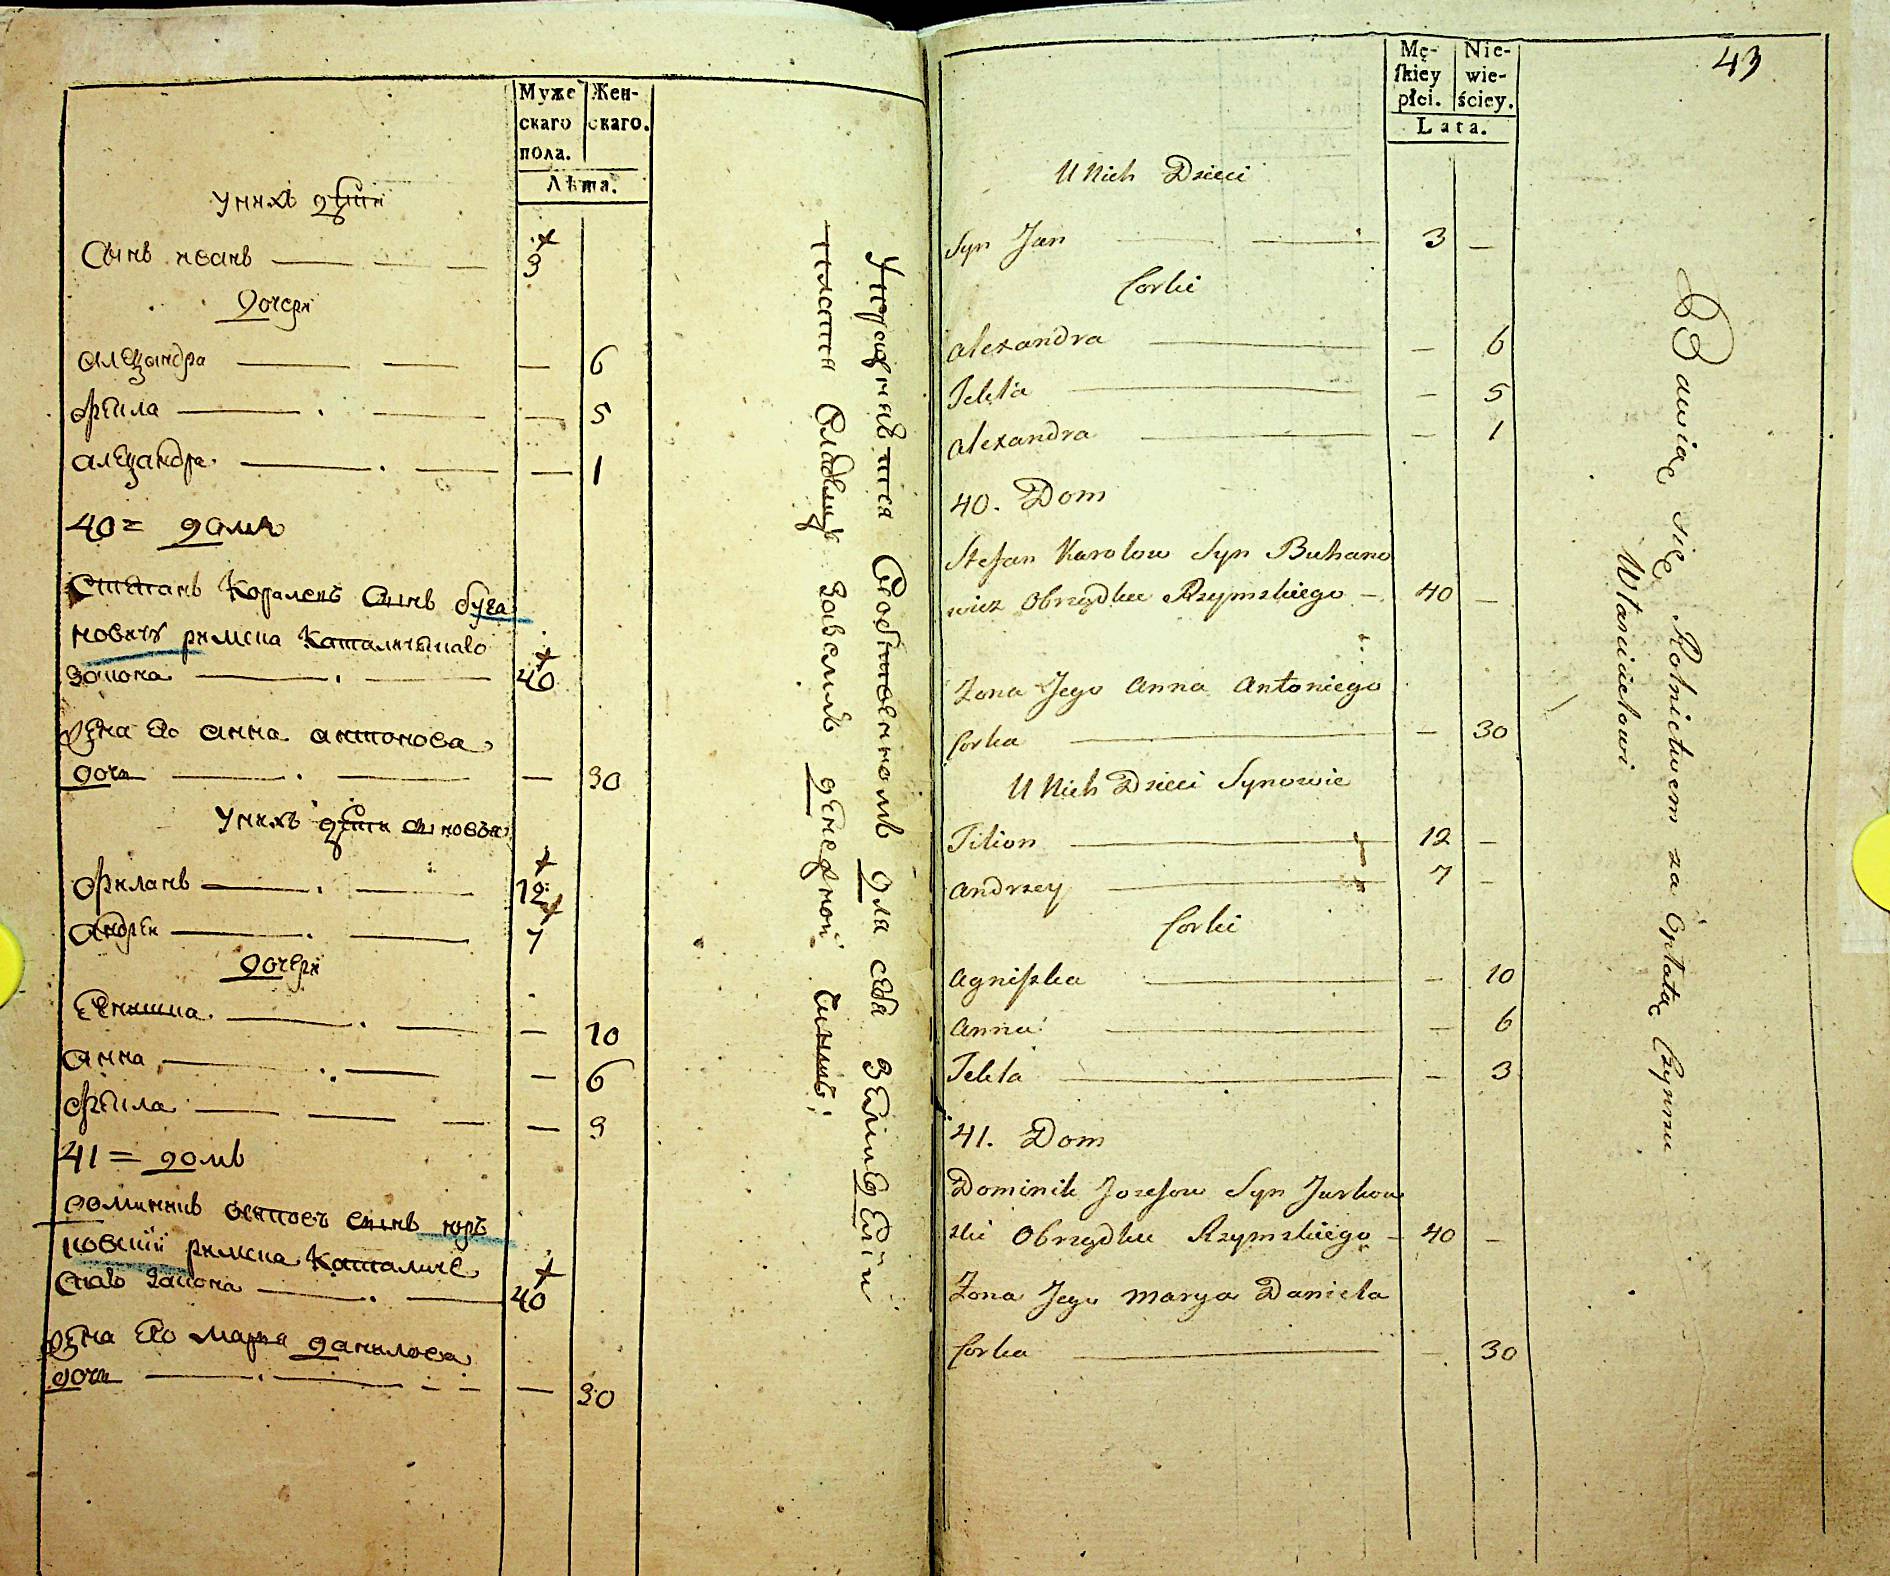 Муже
скаго
пола.
Жен-
скаго.
Лѣта.
У нихъ дѣти
Сынъ иванъ — — — 3
дочери
алеѯандра — — — 6
ѳекла — — — 5
алеѯандра — — — 1
40 = домъ
Степанъ Каролевъ сынъ буха
новичъ римска Католичыцкаго
закона — — 40
жена его анна антонова
дочь — — — 30
У нихъ дѣти сыновья
филонъ — — 12
Андреи — — 7
дочери
анна — — — 6
ѳекла — — — 3
41 = домъ
доминикъ осиповъ сынъ юрь
ковский римска Католиче
скаго закона — — 40
жена его марья данилова
дочь — — — 30
Упражняется в свободномъ для себя
платя владелцу денежной чиншъ
43
Mę-
skiey
płci.
Nie-
wie-
ściey.
Lata.
U Nich Dzieci
Syn Jan — — 3 —
Corki
Alexandra — — 6
Tekla — — 5
Alexandra — — 1
40. Dom
Stefan Karolow Syn Buhano
wicz Obrządku Rzymskiego — 40 —
Zona Jego Anna Antoniego
Corka — — 30
U Nich Dzieci Synowie
Filion — 12 —
Andrzey — 7 —
Corki
Agniszka — — 10
Anna — — 6
Tekla — — 3
41. Dom
Dominik Jozefow Syn Jurkow
ski Obrządku Rzymskiego — 40 —
Zona Jego Marya Daniela
Corka — — 30
Bawiąc się Rolnictwem za Opłatą Czynszu
Włascicielowi